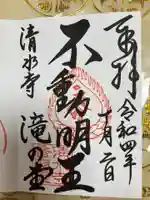 奉拝
令和四年
十月二日
不動明王
清水寺
滝の堂